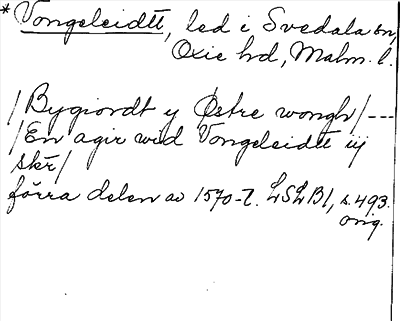 *Vongeleidtt, led i Svedala sn,
Oxie hd, Malm. l.
/Bygiordt y Østre wongh/---
/En agir wid Vongeleidtt iij
skr/
förra delen av 1570-t. LSLB1, s. 493.
orig.